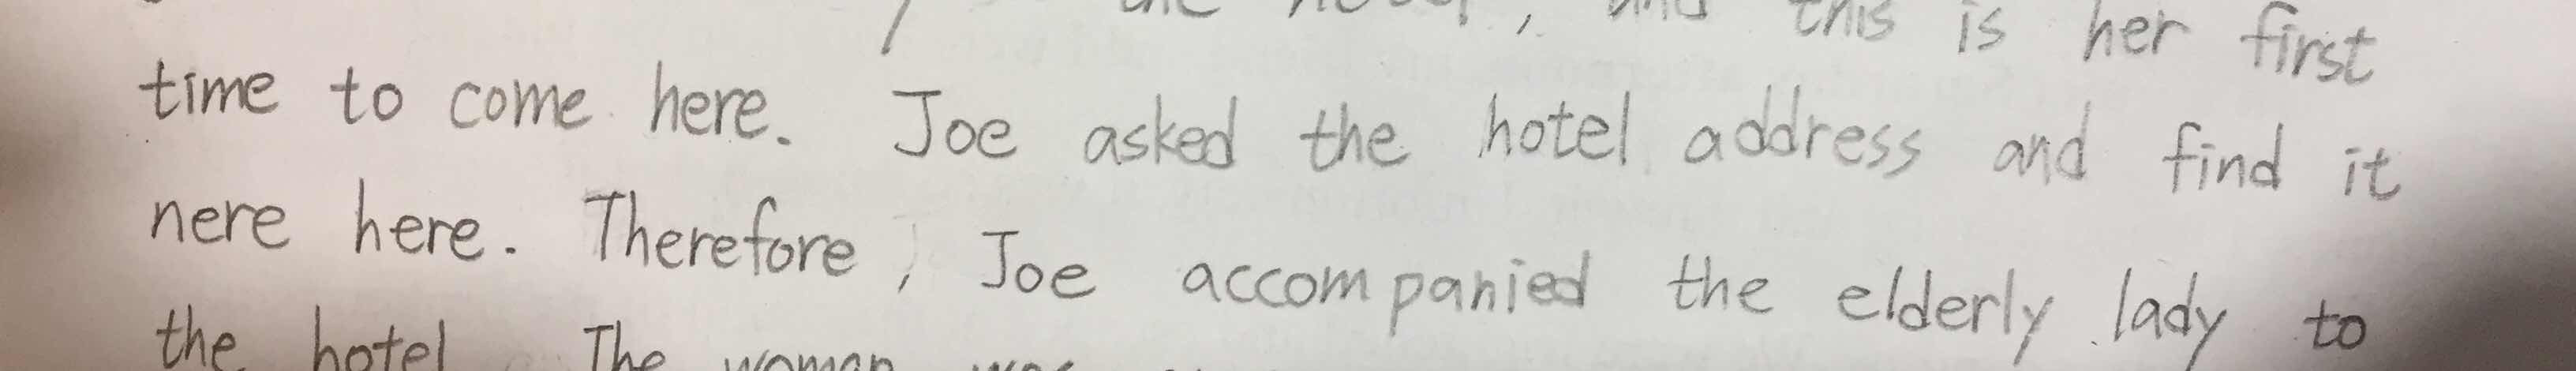 the hotel, and this is her first
time to come here. Joe asked the hotel address and find it
nere here. Therefore, Joe accompanied the elderly lady to
the hotel. The woman was